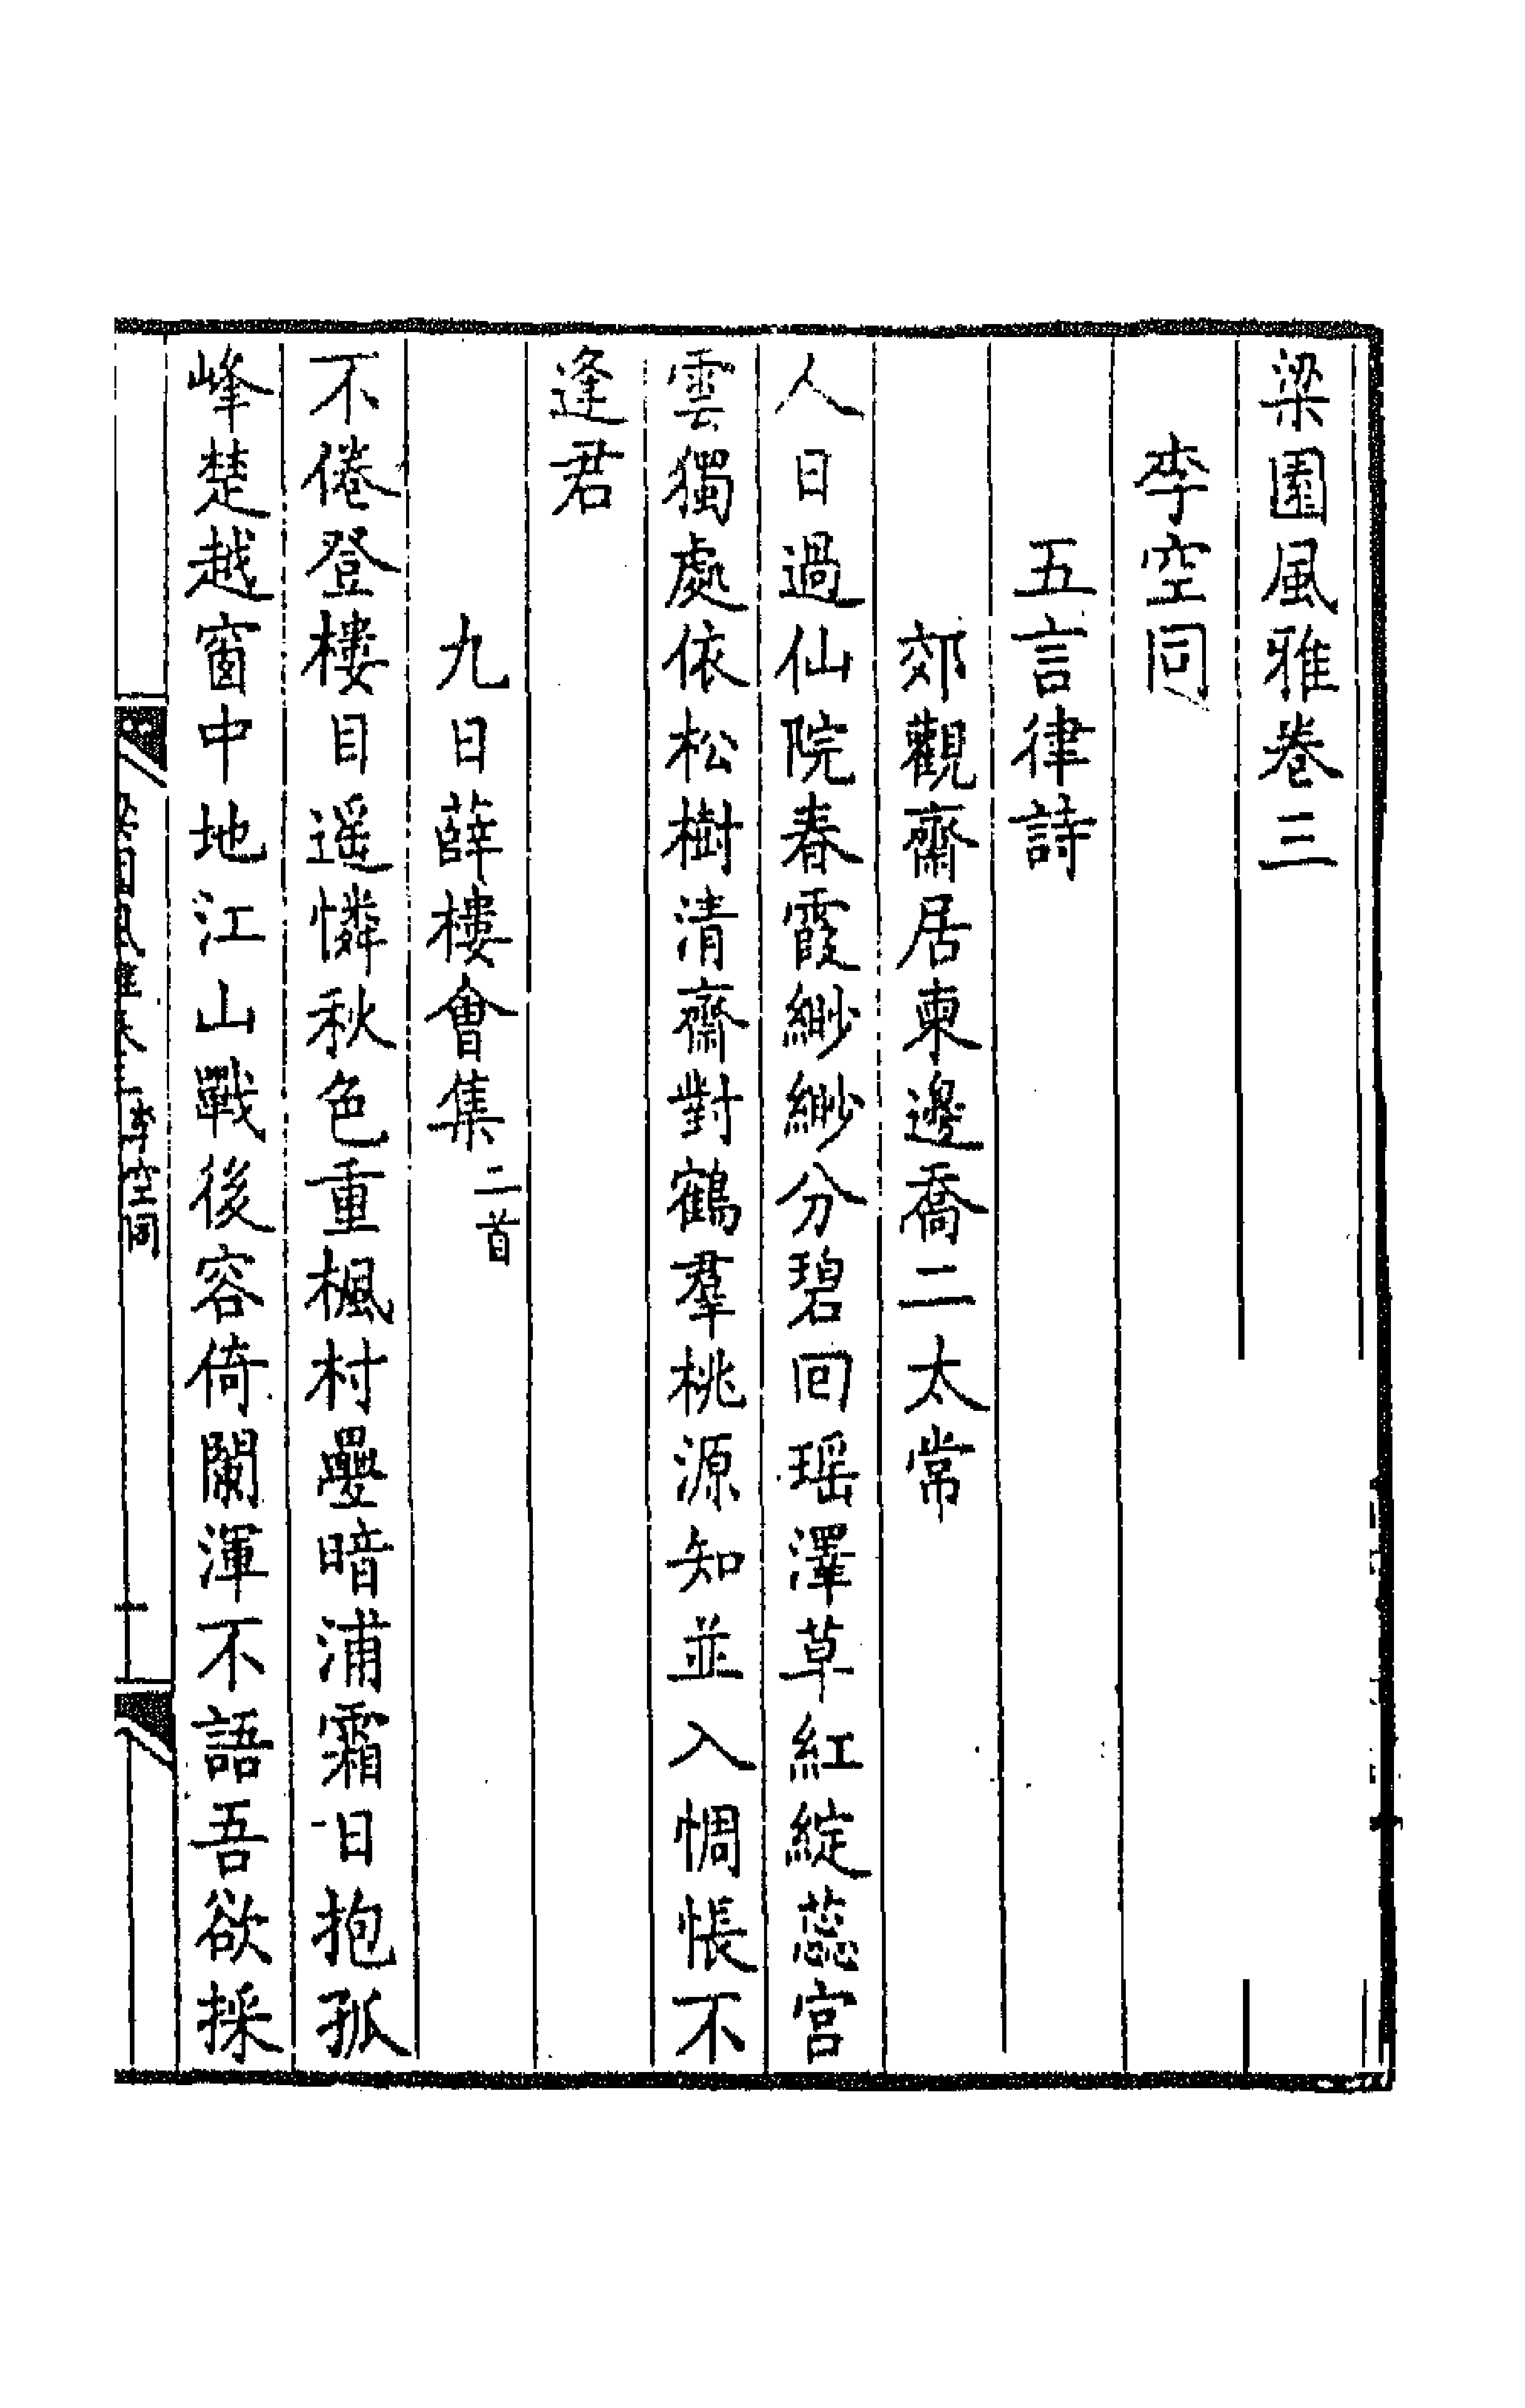 梁園風雅卷三
李空同
五言律詩
郊觀齋居柬邊喬二太常
人日過仙院春霞緲緲分碧回瑶澤草紅綻蕊宫
雲獨處依松樹清齋對鶴羣桃源知並入惆悵不
逢君
九日薛樓會集二首
不倦登樓目遥憐秋色重楓村壘暗浦霜日抱孤
峰楚越窗中地江山戰後容倚闌渾不語吾欲採
梁園風雅卷三 李空同 一